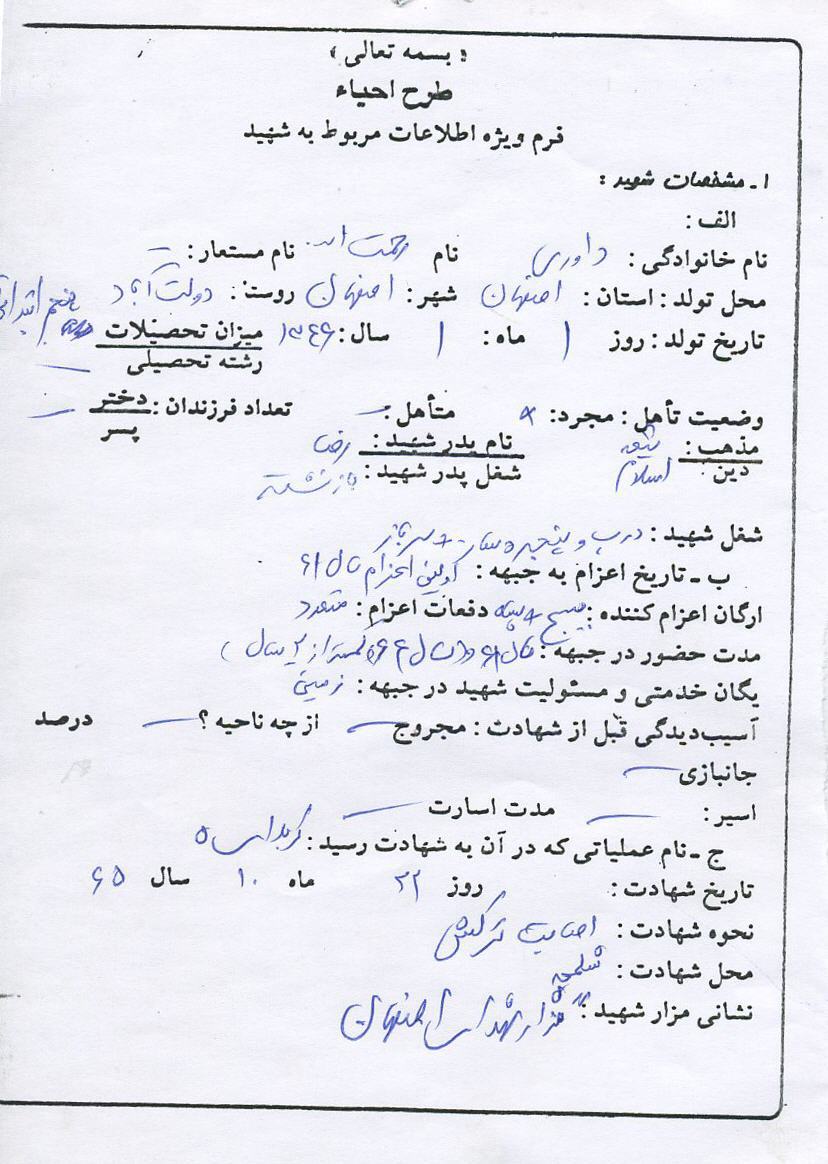 « بسمه تعالی »
طرح احیاء
فرم ویژه اطلاعات مربوط به شهید
۱ـ مشخصات شهید :
الف :
نام خانوادگی : داوری نام رحمت اله نام مستعار : –
محل تولد : استان : اصفهان شهر : اصفهان روستا : دولت آباد
تاریخ تولد : روز ۱ ماه : ۱ سال : ۱۳۴۶ میزان تحصیلات پنجم ابتدایی
رشته تحصیلی —
وضعیت تأهل : مجرد : × متأهل : – تعداد فرزندان : دختر —
پسر
مذهب : شیعه نام پدر شهید : رضا
دین : اسلام شغل پدر شهید : بازنشسته
شغل شهید : درب و پنجره ساز - سرباز
ب ـ تاریخ اعزام به جبهه : اولین اعزام سال ۶۱
ارگان اعزام کننده : بسیج + سپاه دفعات اعزام : متعدد
مدت حضور در جبهه : کمتر از ۲ سال )
یگان خدمتی و مسئولیت شهید در جبهه : زمینی
آسیب‌دیدگی قبل از شهادت : مجروح — از چه ناحیه ؟ — درصد
جانبازی —
اسیر : — مدت اسارت —
ج ـ نام عملیاتی که در آن به شهادت رسید : کربلای ۵
تاریخ شهادت : روز ۲۲ ماه ۱۰ سال ۶۵
نحوه شهادت : اصابت ترکش
محل شهادت : شلمچه
نشانی مزار شهید : گلزار شهدای اصفهان